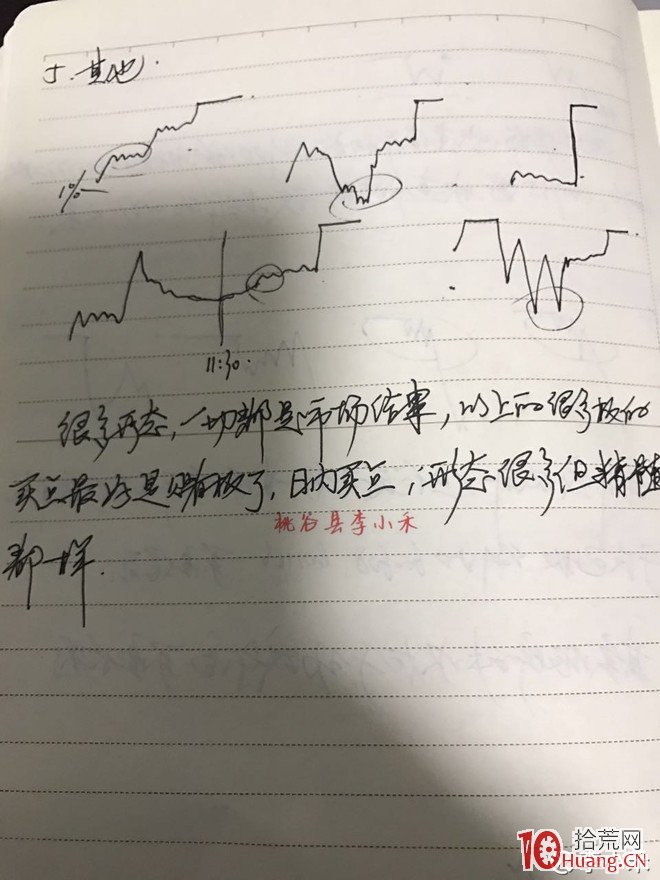 5. 其他.
1%
11:30.
很多形态,一切都是市场结果,以上的很多板的
买点最后是看板了,日内买点,形态很多但精髓
桃谷县李小禾
都一样.
10 拾荒网
Huang.CN